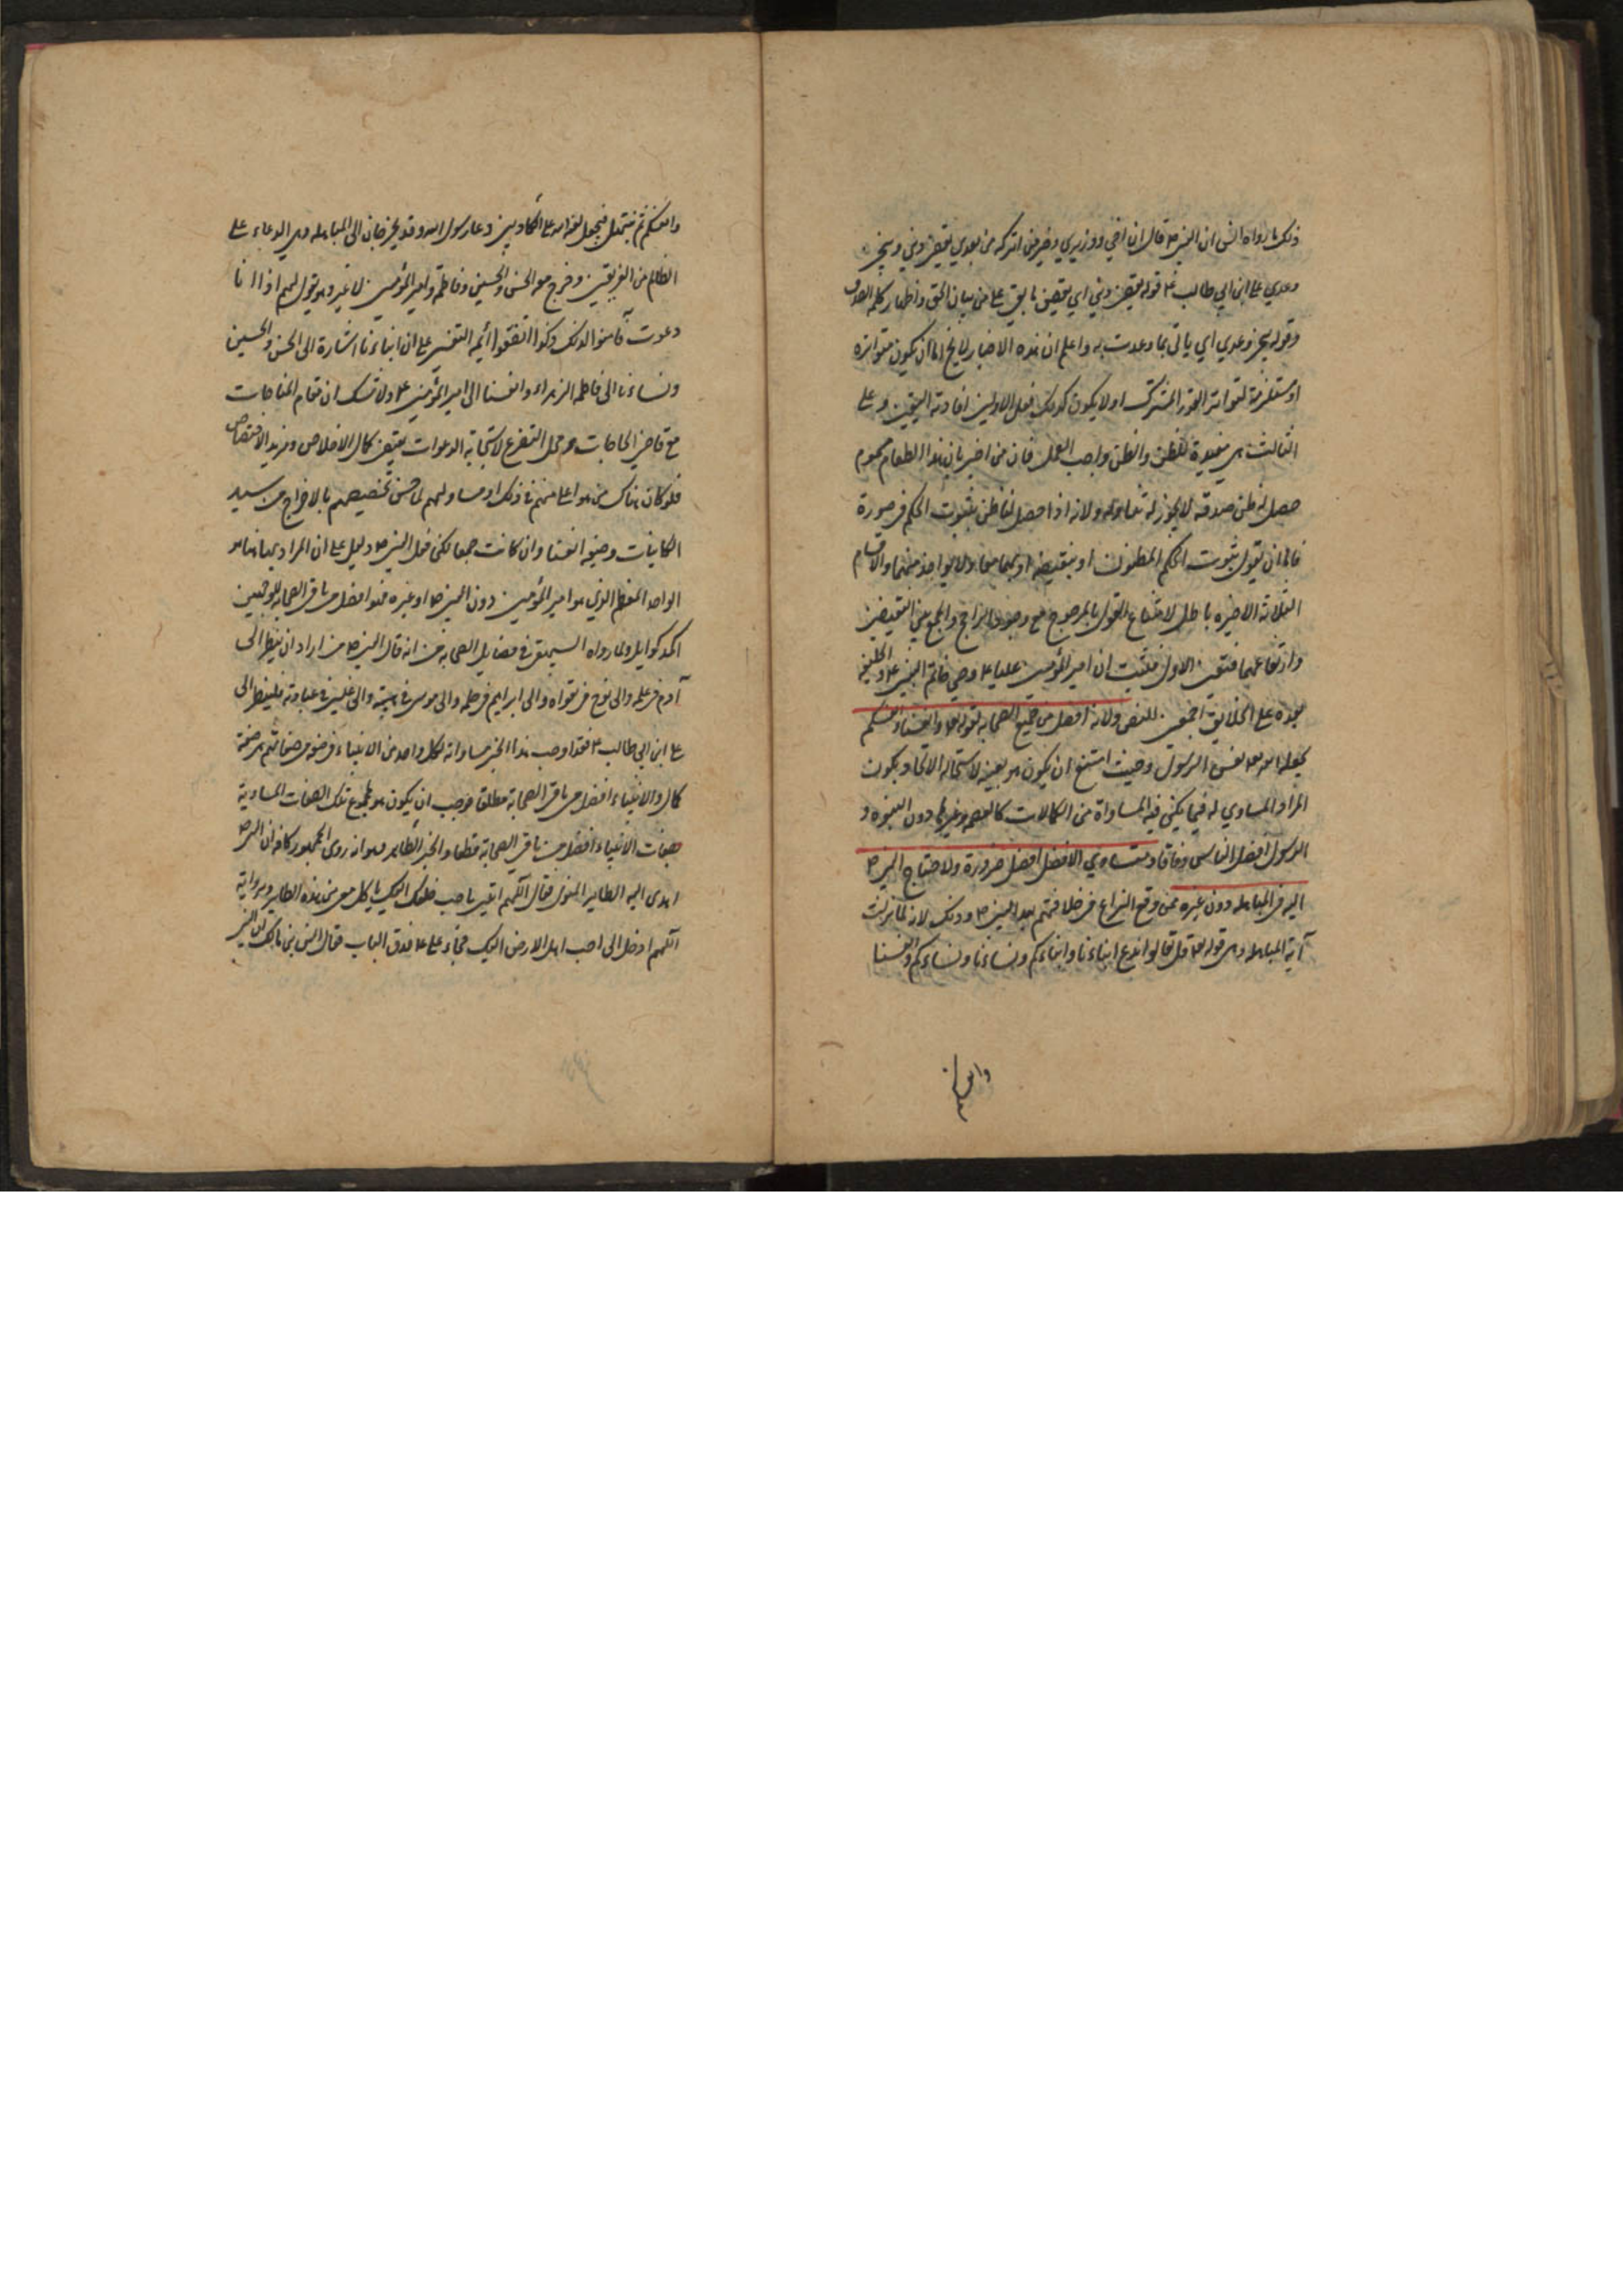 ذلك ما رواه انس ان النبي ص قال ان اخي ووزيري وخير من اتركه من بعدي يقضي ديني وينجز
وعدي علي ابن ابي طالب ع قوله يقضي ديني اي يقضي ما بقي علي من بيان الحق واظهار كلمة الصدق
وقوله ينجز وعدي اي ياتي بما وعدت به واعلم ان هذه الاخبار لا يخ اما ان يكون متواترة
او مستلزمة لتواتر القدر المشترك او لا يكون كذلك فعلى الاولين افادته اليقين وعلى
الثالث هي مفيدة للظن والظن واجب العمل فان من اخبر بان هذا الطعام مسموم
حصل له ظن صدقه لا يجوز له تناوله ولانه اذا حصل لنا ظن بثبوت الحكم في صورة
فاما ان يقول بثبوت الحكم المظنون او بنقيضه او بهما معا او لا بواحد منهما والاقسام
الثلاثة الاخيره باطل لامتناع القول بالمرجوح مع وجود الراجح والجمع بين النقيضين
وارتفاعهما فتعين الاول فثبت ان امير المؤمنين عليا ع وصي خاتم النبيين ع والخليفة
بعده على الخلايق اجمعين للنص ولانه افضل من جميع الصحابه لقوله تع وانفسنا وانفسكم
بجعله الله تع نفس الرسول وحيث امتنع ان يكون هو بعينه لاستحالة الاتحاد يكون
المراد المساوي له فيما يمكن فيه المساواة من الكمالات كالعصمة وغيرها دون النبوه و
الرسول افضل الناس وفاقا ومساوي الافضل افضل ضرورة ولاحتياج النبي ص
اليه في المباهله دون غيره ممن وقع النزاع في خلافتهم بعد النبي ص وذلك لانه لما نزلت
آية المباهله وهي قوله تع قل تعالوا ندع ابناءنا وابناءكم ونساءنا ونساءكم وانفسنا
وانفسكم
وانفسكم ثم نبتهل فنجعل لعنة الله على الكاذبين دعا رسول الله وفد نجران الى المباهله وهي الدعاء على
الظالم من الفريقين وخرج معه الحسن والحسين وفاطمة وامير المؤمنين لا غير وهو يقول لهم اذا انا
دعوت فآمنوا لذلك وكذا اتفقوا أئمه التفسير على ان ابناءنا اشارة الى الحسن والحسين
ونساءنا الى فاطمه الزهراء وانفسنا الى امير المؤمنين ع ولا شك ان مقام المناجات
مع قاضي الحاجات ومحل التضرع لاستجابة الدعوات يقتضي كمال الاخلاص ومزيد الاختصاص
فلو كان هناك من هو اعلى منهم في ذلك او مساو لهم لما حسن تخصيصهم بالاخراج من سيد
الكاينات وصيغه انفسنا وان كانت جمعا لكن فعل النبي ص دليل على ان المراد بها هنا هو
الواحد المعظم الذي هو امير المؤمنين دون النبي ص او غيره فهو افضل من باقي الصحابه للوجهين
المذكورين ولما رواه البيهقي في فضايل الصحابه من انه قال النبي ص من اراد ان ينظر الى
آدم في علمه والى نوح في تقواه والى ابراهيم في حلمه والى موسى في هيبته والى عيسى في عبادته فلينظر الى
علي ابن ابي طالب ع فقد اوجب هذا الخبر مساواته لكل واحد من الانبياء في صفة من صفاتهم هي صفة
كمال والانبياء افضل من باقي الصحابة مطلقا فوجب ان يكون هو مجموع تلك الصفات المساوية
بصفات الانبياء افضل من باقي الصحابة قطعا ولخبر الطاير وهو انه روى الجمهور كافه ان النبي ص
اهدى اليه الطاير المشوي فقال اللهم ائتني باحب خلقك اليك ياكل معي من هذه الطاير وبرواية
اللهم ادخل الى احب اهل الارض اليك فجاء علي ع فدق الباب فقال انس بن مالك ان النبي